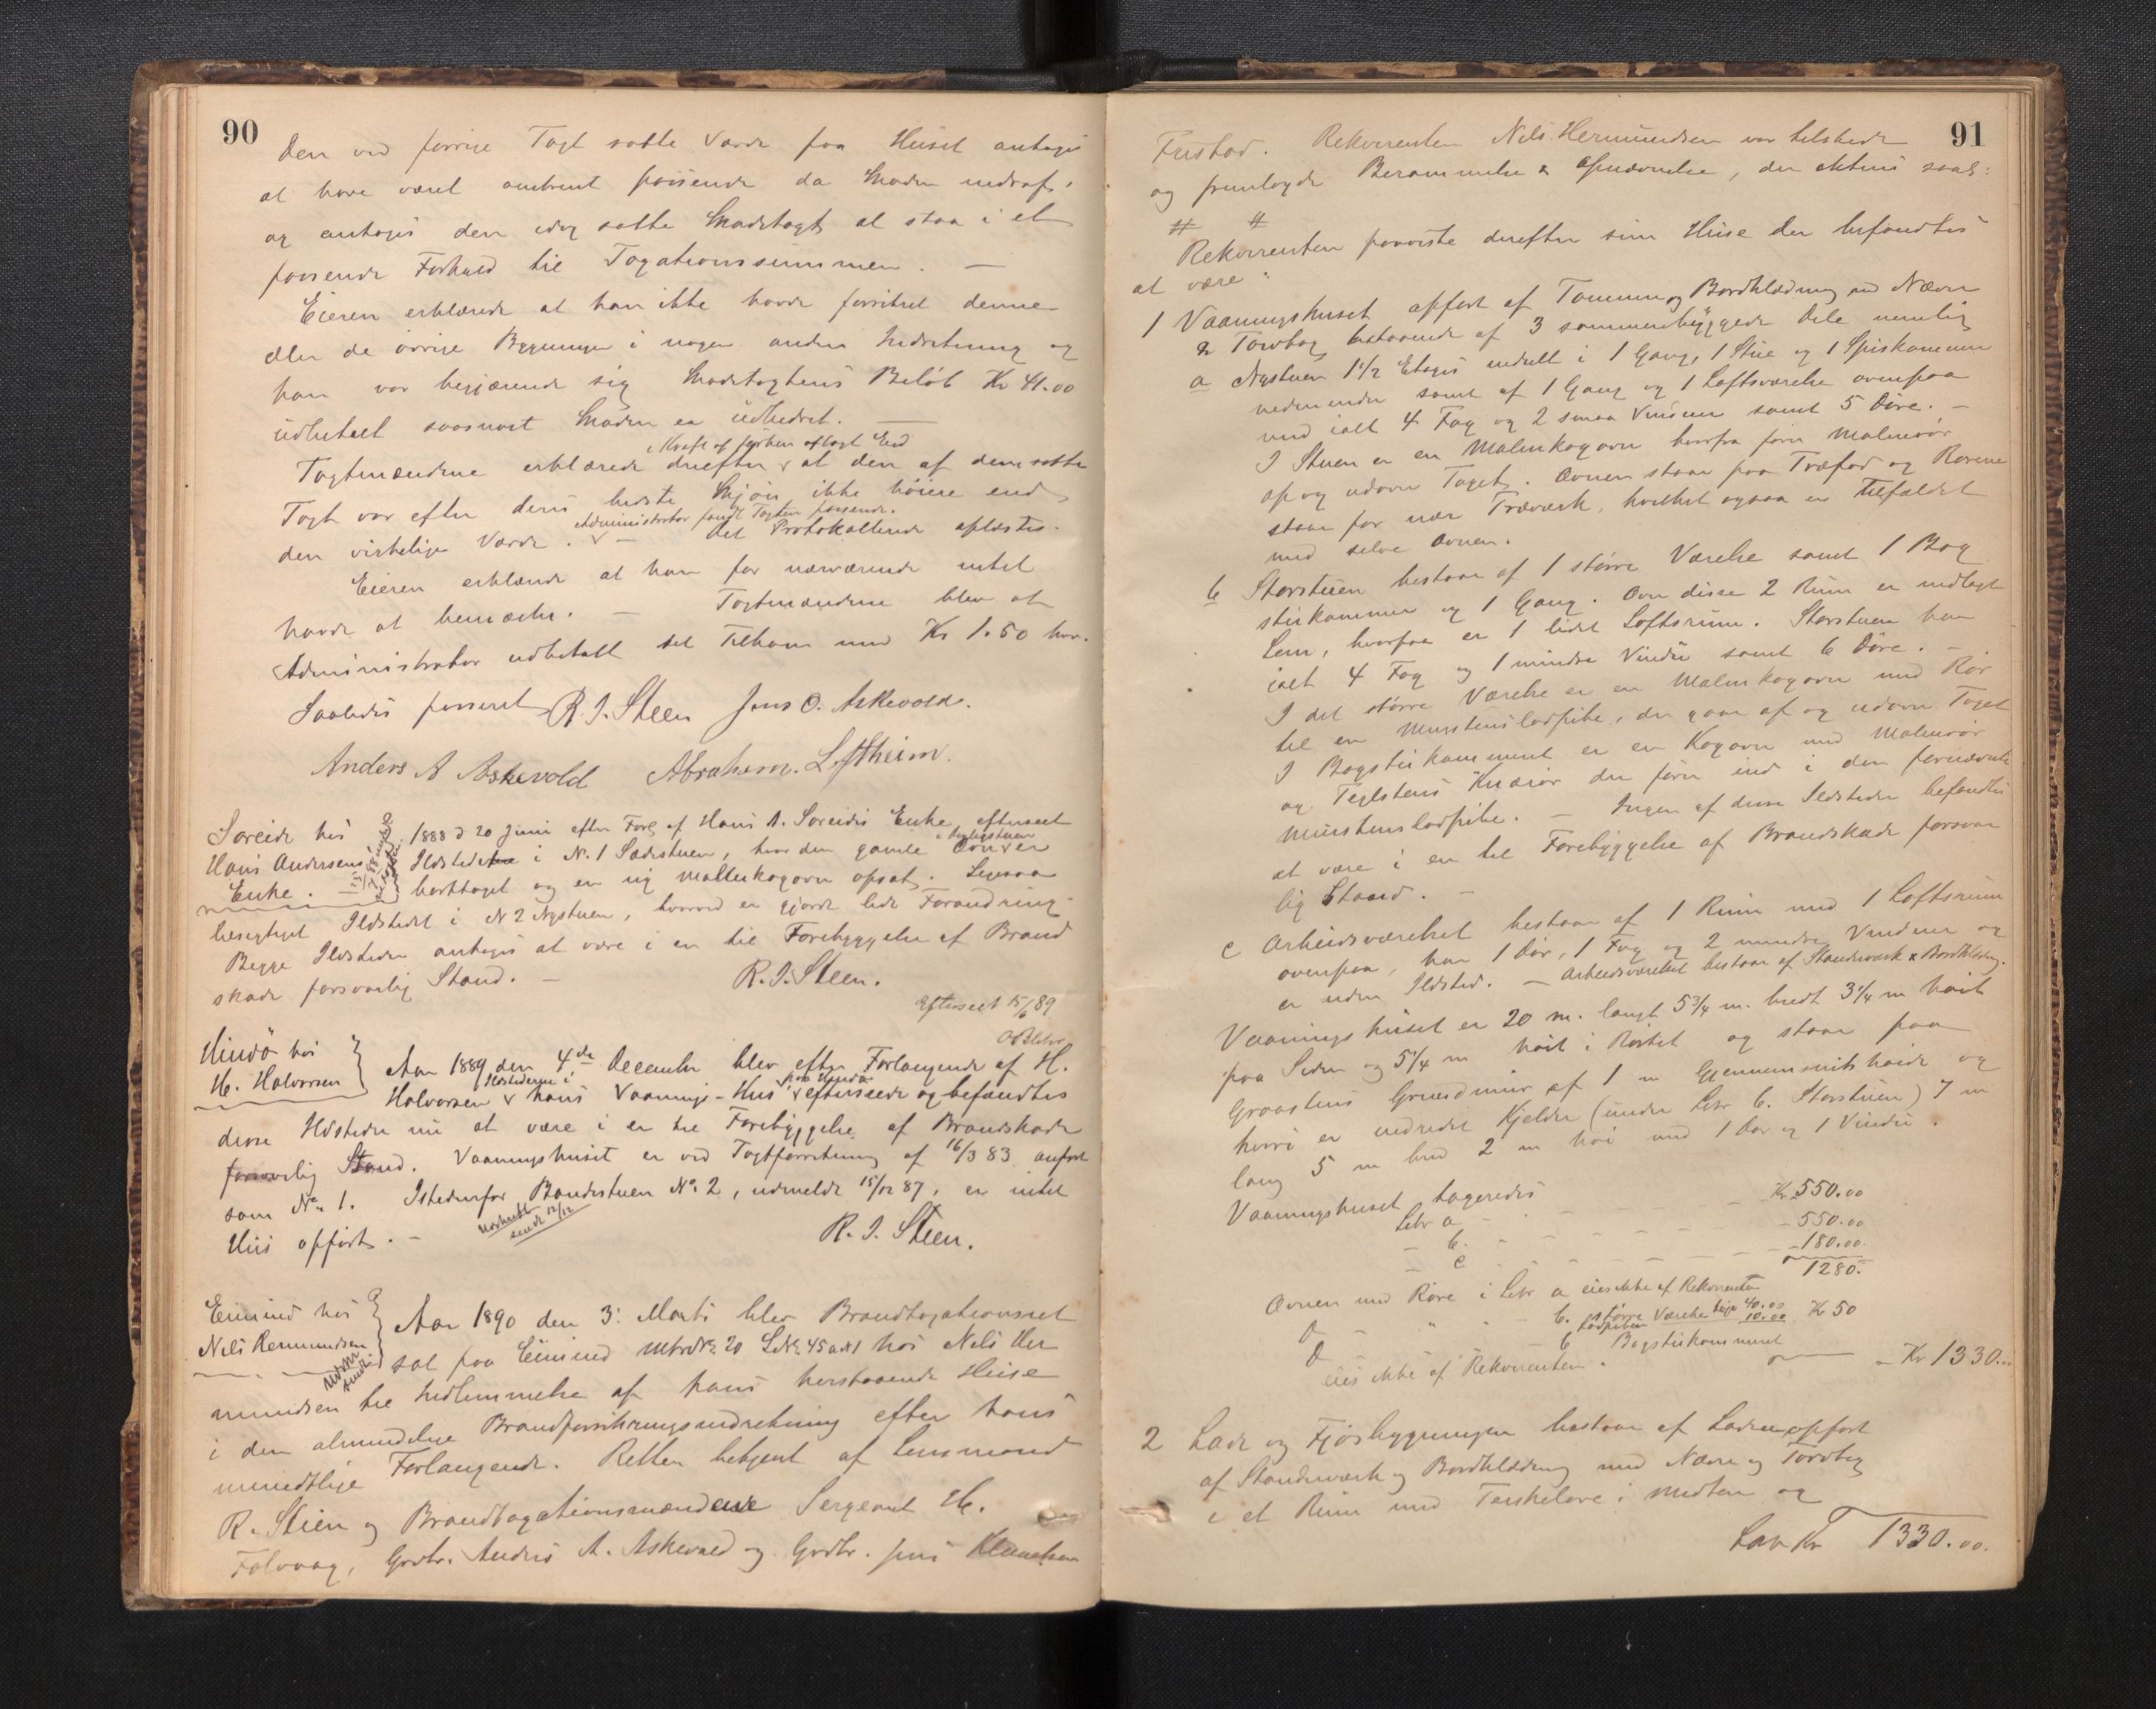 90
Den ved forrige Taxt satte Værdi paa Huset antages
at have været omtrent passende da Skaden indtraf,
og antages den idag satte Skadetaxt at staa i et
passende Forhold til Taxationssummen. —
Eieren erklærede at han ikke havde forsikret denne
eller de øvrige Bygninger i nogen anden Indretning og
han var begjærende sig Skadetaxtens Beløb Kr 41.00
udbetalt saasnart Skaden er udbedret. —
i Kraft af forhen aflagt Eed
Taxtmændene erklærede derefter at den af dem satte
Taxt var efter deres bedste Skjøn ikke høiere end
Administrator fandt Taxten passende.
den virkelige Værdi. — Det Protokollerede oplæstes.
Eieren erklærede at han for nærværende intet
havde at bemærke. — Taxtmændene blev af
Administrator udbetalt sit Tilkom med Kr 1.50 hver.
Saaledes passeret R. J. Steen Jens O. Askevold.
Anders A Askevold Abraham. L. Aftheim.
Søreide hos
Hans Andersens
Enke.
1888 d 20 Juni efter Forl af Hans A. Søreides Enke efterseet
Ildstederne i No. 1 Sædestuen, hvor den gamle Ovn er
borttaget og en ny Malmkogovn opsat. Ligesaa
besigtiget Ildstedet i N 2 Nystuen, hvorved er gjort lidt Forandring
Begge Ildsteder antages at være i en til Forebyggelse af Brand
skade forsvarlig Stand. — R. J. Steen.
Efterseet 15/6 89
Hindø hos
H. Halvorsen
Aar 1889 den 4de December blev efter Forlangende af H.
Ildstederne i paa Hindø
Halvorsen hans Vaanings-Hus efterseede og befandtes
disse Ildsteder nu at være i en til Forebyggelse af Brandskade
forsvarlig Stand. Vaaningshuset er ved Taxtforretning af 16/3 83 anført
som No 1. Istedenfor Baadestuen No 2, udmeldt 15/12 87, er intet
Hus opført. —
Udskrift
sendt 12/12
R. J. Steen.
Eimind hos
Nils Hermundsen
Udskr
sendt
Aar 1890 den 3: Marts blev Brandtaxationsret
sat paa Eimind MtrNr. 20 LNr. 45 a.1 hos Nils Her
mundsen til Indlemmelse af hans herstaaende Huse
i den almindelige Brandforsikringsindretning efter hans
mundtlige Forlangende. Retten betjent af Lensmand
R. Steen og Brandtaxationsmændene Sergeant H.
Folevaag, Grdbr. Anders A. Askevold og Grdbr. Jens Klausen
91
Fristad. Rekvirenten Nils Hermundsen var tilstede
og fremlagde Berammelse & Opnævnelse, der aktens saal:
# #
Rekvirenten paaviste derefter sine Huse der befandtes
at være:
1 Vaaningshuset opført af Tømmer og Bordklædning med Næver
& Torvtag bestaaende af 3 sammenbyggede Dele nemlig
a Nystuen 1 1/2 Etages indrett i 1 Gang, 1 Stue og 1 Spiskammer
nedenunder samt af 1 Gang og 1 Loftsværelse ovenpaa
med ialt 4 Fag og 2 smaa Vinduer samt 5 Døre. —
I Stuen er en Malmkogovn hvorfra fører Malmrør
op og udover Taget. Ovnen staar paa Træfod og Rørene
staar for nær Træværk, hvilket ogsaa er Tilfældet
med selve Ovnen.
b Storstuen bestaar af 1 større Værelse samt 1 Bag
stukammer og 1 Gang. Over disse 2 Rum er indlagt
Lem, hvorpaa er 1 lidet Loftsrum. Storstuen har
ialt 4 Fag og 1 mindre Vindue samt 6 Døre. —
I det større Værelse er en Malmkogovn med Rør
til en Murstensladpibe, der gaar op og udover Taget
I Bagstukammeret er en Kogovn med Malmrør
og Teglstens Knærør der fører ind i den fornævnte
Murstensladpibe. — Ingen af disse Ildsteder befandtes
at være i en til Forebyggelse af Brandskade forsvar
lig Stand. —
c Arbeidsværelset bestaar af 1 Rum med 1 Loftsrum
ovenpaa, har 1 Dør, 1 Fag og 2 mindre Vinduer og
er uden Ildsted. — Arbeidsværelset bestaar af Standerværk & Bordklædng.
Vaaningshuset er 20 m. langt 5 3/4 m. bredt 3 1/4 m høit
paa Siden og 5 1/4 m høit i Røstet og staar paa
Graastens Grundmur af 1 m Gjennemsnits høide og
hvori er indredet Kjelder (under Litr b. Storstuen) 7 m
lang 5 m bred 2 m høi med 1 Dør og 1 Vindue.
Vaaningshuset taxeredes
Litr a — Kr 550.00
— b. — 550.00
— c — 180.00
1280.-
Ovnen med Røre i Litr a eies ikke af Rekvirenten
Do — " — b. større Værelse 40.00
Ladpiben 10.00 Kr 50
Do b Bagstukammeret
eies ikke af Rekvirenten. — Kr 1330.00
2 Lade og Fjøsbygningen bestaar af Laden opført
af Standerværk og Bordklædning med Næver og Torvtag
i et Rum med Treskelove i Midten og
Lar Kr 1330.00.